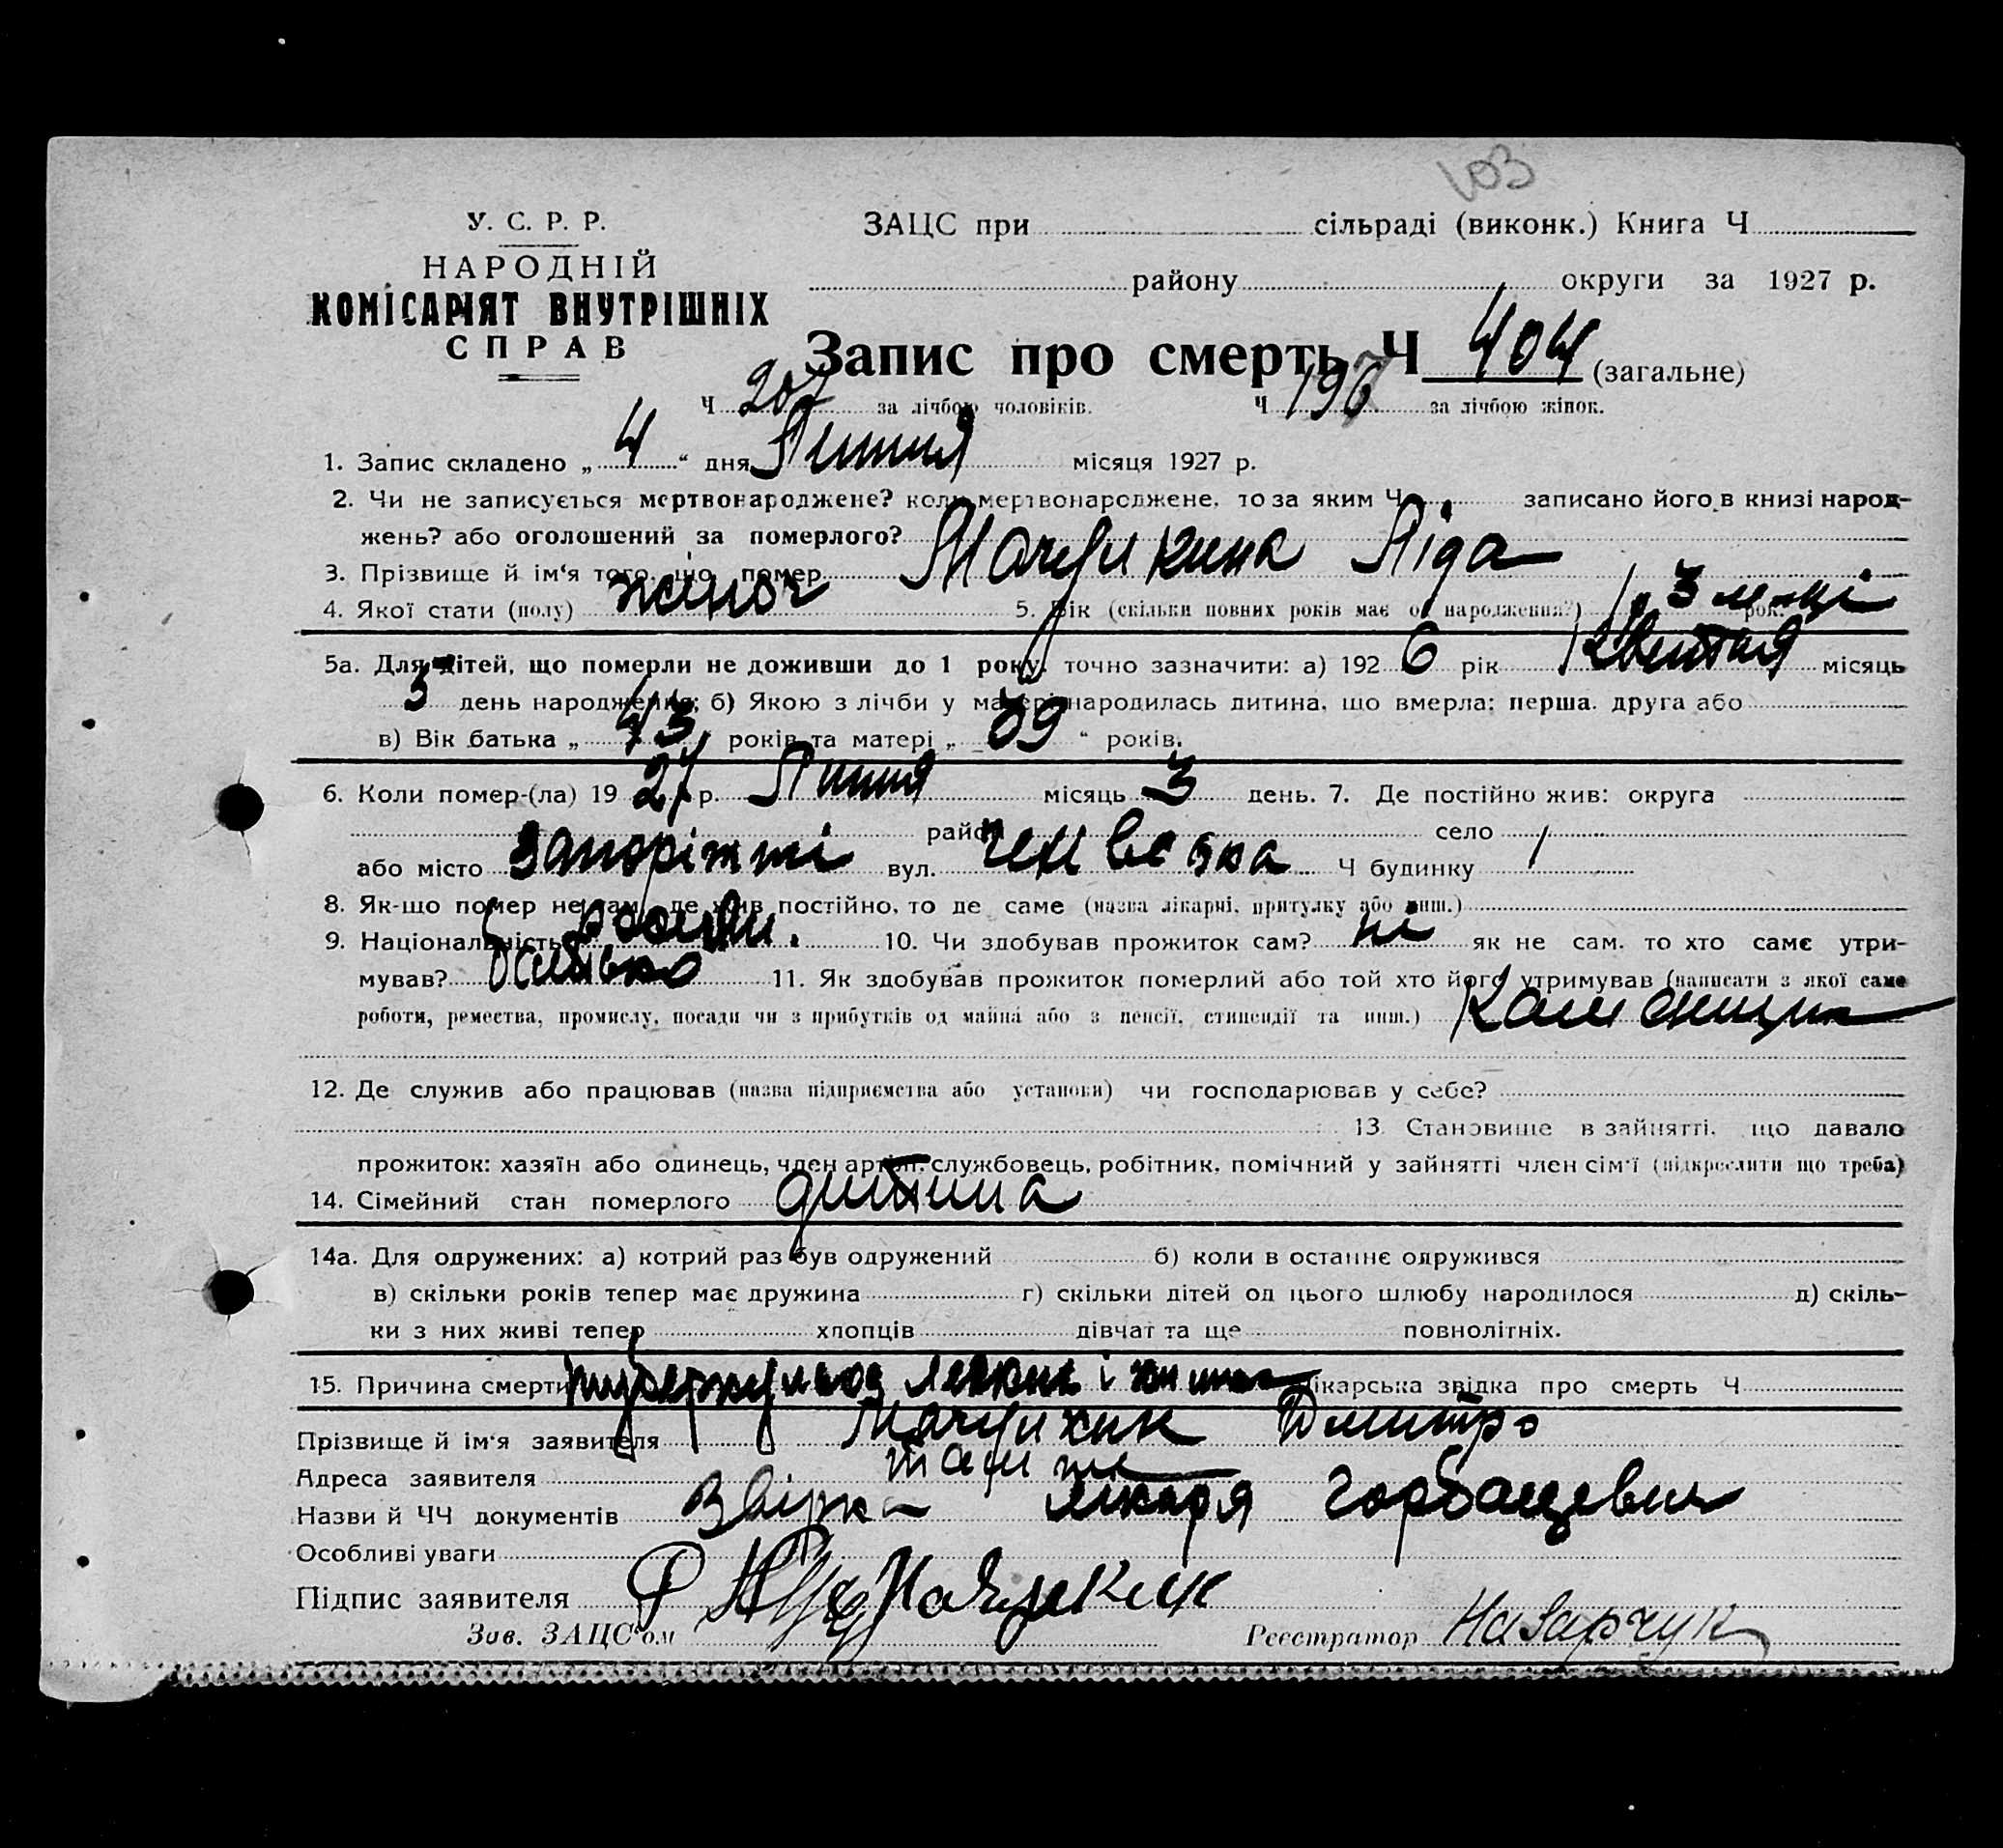 103
У. С. Р. Р.
НАРОДНІЙ
КОМІСАРІЯТ ВНУТРІШНІХ
СПРАВ
ЗАЦС при сільраді (виконк.) Книга Ч
району округи за 1927 р.
Запис про смерть Ч 404 (загальне)
Ч 207 за лічбою чоловіків. Ч 197 за лічбою жінок.
1. Запис складено „ 4 “ дня Липня місяця 1927 р.
2. Чи не записується мертвонароджене? коли мертвонароджене, то за яким Ч записано його в книзі народ-
жень? або оголошений за померлого?
3. Прізвище й ім'я того, що помер Ліда
4. Якої стати (полу) жіноч 5. Вік (скільки повних років має од народження?) 1 р 3 м-ці рок.
5а. Для дітей, що померли не доживши до 1 року, точно зазначити: а) 192 6 рік Квітня місяць
3 день народження; б) Якою з лічби у матері народилась дитина, що вмерла: перша, друга або
в) Вік батька „ 43 років та матері „ 39 “ років.
6. Коли помер-(ла) 19 27 р. Липня місяць 3 день. 7. Де постійно жив: округа
район село
або місто Запоріжжі вул. Ч будинку 1
8. Як-що помер не там, де жив постійно, то де саме (назва лікарні, притулку або инш.)
9. Національність 10. Чи здобував прожиток сам? ні як не сам, то хто саме утри-
мував? батько 11. Як здобував прожиток померлий або той хто його утримував (написати з якої саме
роботи, ремества, промислу, посади чи з прибутків од майна або з пенсії, стипендії та инш.) Каменщик
12. Де служив або працював (назва підприємства або установи) чи господарював у себе?
13. Становище в зайнятті, що давало
прожиток: хазяїн або одинець, член артілі, службовець, робітник, помічний у зайнятті член сім'ї (підкреслити що треба)
14. Сімейний стан померлого дитина
14а. Для одружених: а) котрий раз був одружений б) коли в останнє одружився
в) скільки років тепер має дружина г) скільки дітей од цього шлюбу народилося д) скіль-
ки з них живі тепер хлопців дівчат та ще повнолітніх.
15. Причина смерти туберкульоз легких і Лікарська звідка про смерть Ч
Прізвище й ім'я заявителя Дмитро
Адреса заявителя там же
Назви й ЧЧ документів лікаря
Особливі уваги
Підпис заявителя
Зав. ЗАЦС'ом Реєстратор Назарчук